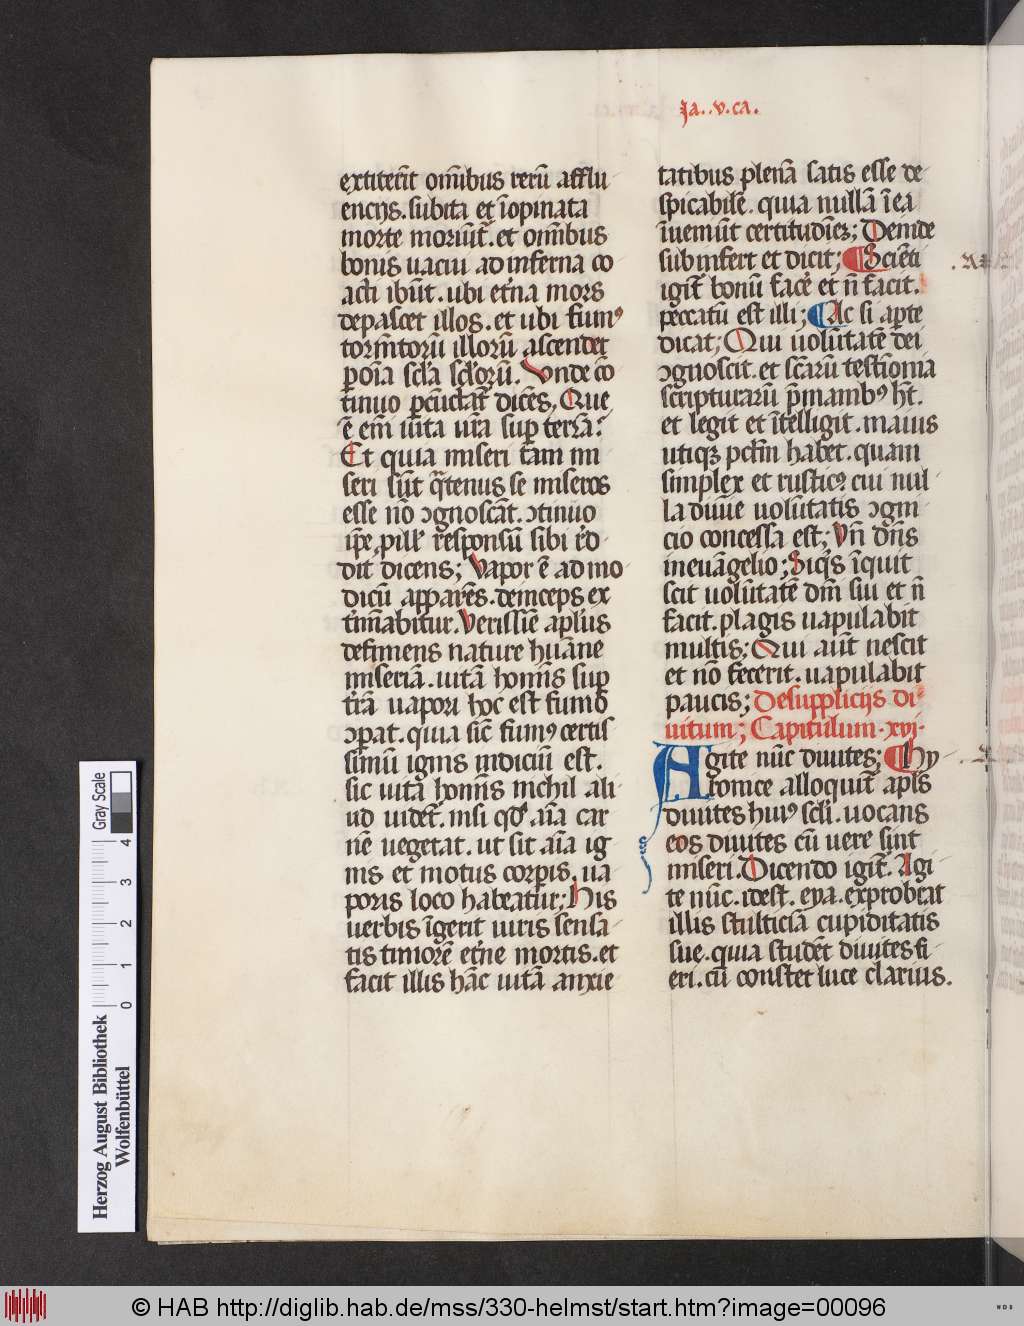 ja..v.ca.
extiterīt om̄ibus rerū afflu
encijs.subita et īopinata
morte moriūt̄.et om̄ibus
bonis uacui ad inferna co
acti ibūt.ubi et̄na mors
depascet illos.et ubi fum᷒
torm̄torū illorū ascendet
ꝑ om̄ia scl̄a scl̄orū. Unde cō
tinuo ꝑcūctat̄ dicēs. Que
ē em̄ uita ur̄a super terrā?
Et quia miseri tam mi
seri sūt quatenus se miseros
esse nō ꝯgnoscāt.ꝯtinuo
responsū sibi
dit dicens; Vapor ē ad mo
dicū apparēs.deinceps ex
t̄minabitur. Verissīe apl̄us
definiens nature huāne
miseriā.uitā hominis sup
t̄rā uapori hoc est fumo
ꝯparat.quia sic̄ fum᷒ certis
simū ignis indiciū est.
sic uitā hom̄is nichil ali
ud uidet̄.nisi qd̄ aīa car
nē uegetat.ut sit aīa ig
nis et motus corpis.ua
poris loco habeatur; His
uerbis īgerit uiris sensa
tis timorē et̄ne mortis.et
facit illis hāc uitā anxie
tatibus plenā satis esse de
spicabilē.quia nullā ī ea
īuemiūt certitudinē; Deinde
subinfert et dicit; Scient̄i
igit̄ bonū facē et n̄ facit.
peccatū est illi; Ac si apte
dicat; Qui uolūtatē dei
ꝯgnoscit.et scārū testīonia
scripturarū p̄ manib᷒ h̄t.
et legit et ītelligit.maius
utiqꝫ pctm̄ habet.quam
simplex et rustic᷒ cui nul
la diuīe uolūtatis ꝯgni
cio concessa est; Vn̄ dn̄s
in euāgelio; Siq̄s īquit
scit uolūtatē dn̄i sui et n̄
facit.plagis uapulabit
multis; Qui aūt nescit
et nō fecerit.uapulabit
paucis; De supplicijs di
uitum; Capitulum.xvj.
Agite nūc diuites; Hy
ronice alloquit̄ apl̄s
diuites hui᷒ scl̄i.uocans
eos diuites cū uere sint
miseri. Dicendo igit̄. Agi
te nūc.idest.eya.exprobrat
illis stulticiā cupiditatis
sue.quia studēt diuites fi
eri.cū constet luce clarius.
Gray Scale
0 1 2 3 4
Herzog August Bibliothek
Wolfenbüttel
© HAB http://diglib.hab.de/mss/330-helmst/start.htm?image=00096